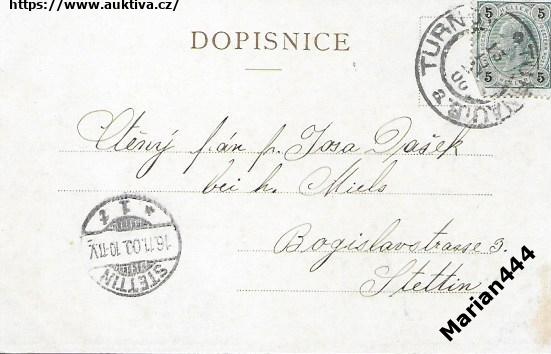 https://www.auktiva.cz/
DOPISNICE
5 5
5 5
TURNAU
Ctěný pán p. Josa Dašek
bei h. Miels
Bogislavstrasse 3.
Stettin
STETTIN
16.11.00. 10-11.V.
* 1 f
Marian444